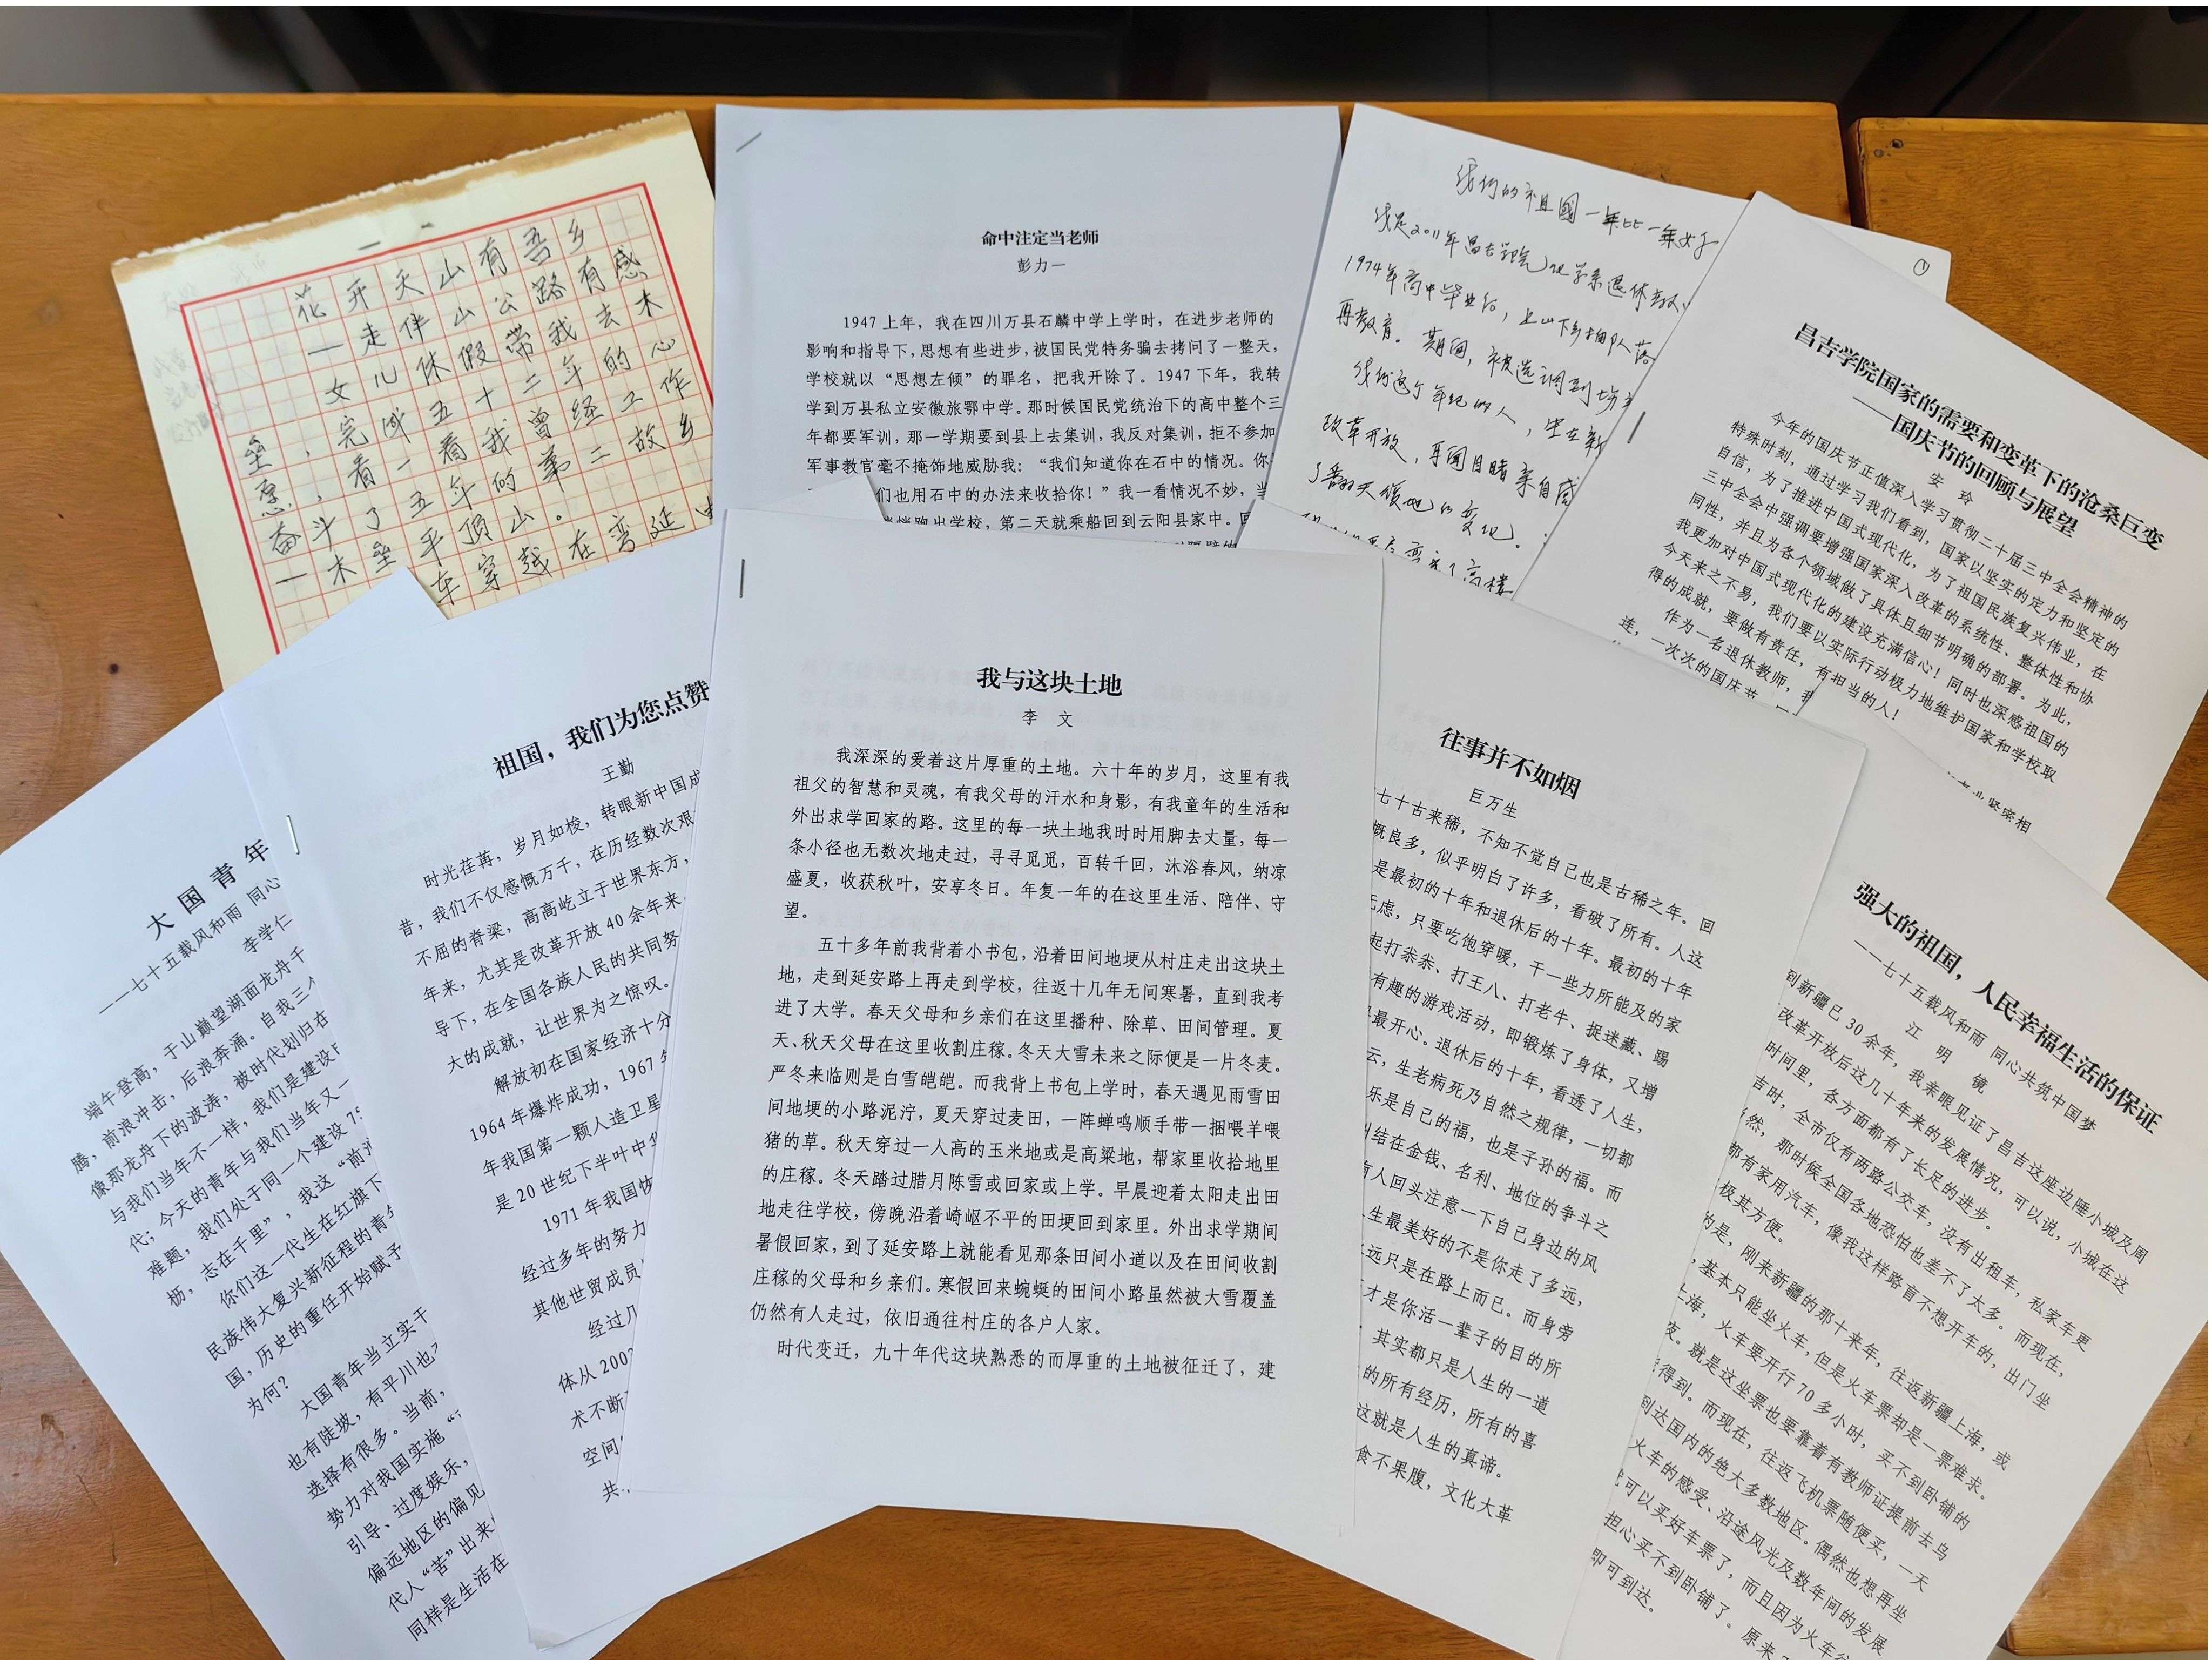 花开天山有吾乡
—走伴山公路有感
女儿休假带我去木
垒,完成五十二年的心
愿,看一看我曾经工作
奋斗了五年的第二故乡
—木垒平顶山。
车穿越在弯延
命中注定当老师
彭力一
1947上年，我在四川万县石麟中学上学时，在进步老师的
影响和指导下，思想有些进步，被国民党特务骗去拷问了一整天，
学校就以“思想左倾”的罪名，把我开除了。1947下年，我转
学到万县私立安徽旅鄂中学。那时候国民党统治下的高中整个三
年都要军训，那一学期要到县上去集训，我反对集训，拒不参加
军事教官毫不掩饰地威胁我：“我们知道你在石中的情况。你
们也用石中的办法来收拾你！”我一看情况不妙，当
跑出学校，第二天就乘船回到云阳县家中。回
我们的祖國一年比一年好
我是2011年昌吉学院
系退休教
1974年高中毕业后，上山下乡插队落
再教育。期间，被选调到
我们这个年纪的人，生在新
改革开放，再国目睹亲自感
了翻天覆地的变化。
高楼
昌吉学院国家的需要和变革下的沧桑巨变
——国庆节的回顾与展望
安 玲
今年的国庆节正值深入学习贯彻二十届三中全会精神的
特殊时刻，通过学习我们看到，国家以坚实的定力和坚定的
自信，为了推进中国式现代化，为了祖国民族复兴伟业，在
三中全会中强调要增强国家深入改革的系统性、整体性和协
同性，并且为各个领域做了具体且细节明确的部署。为此，
我更加对中国式现代化的建设充满信心！同时也深感祖国的
今天来之不易，我们要以实际行动极力地维护国家和学校取
得的成就，要做有责任，有担当的人！
作为一名退休教师，我
业坚实相
连，一次次的国庆节
大国青年
——七十五载风和雨 同心
李学仁
端午登高，于山巅望湖面龙舟千
腾，前浪冲击，后浪奔涌。自我三
像那龙舟下的波涛，被时代划归在
与我们当年不一样，我们是建设
代；今天的青年与我们当年又一
难题，我们处于同一个建设
枥，志在千里”，我这“前
你们这一代生在红旗下
民族伟大复兴新征程的青年
国，历史的重任开始赋予
为何？
大国青年当立实干
也有陡坡，有平川也
选择有很多。当前，
势力对我国实施“
引导、过度娱乐，
偏远地区的偏见
代人“苦”出来
同样是生活在
祖国，我们为您点赞
王勤
时光荏苒，岁月如梭，转眼新中国成
昔，我们不仅感慨万千，在历经数次艰
不屈的脊梁，高高屹立于世界东方，
年来，尤其是改革开放40余年来
导下，在全国各族人民的共同努
大的成就，让世界为之惊叹。
解放初在国家经济十分
1964年爆炸成功，1967年
年我国第一颗人造卫星
是20世纪下半叶中华
1971年我国恢
经过多年的努力
其他世贸成员
经过几
体从200
术不断
空间
共
我与这块土地
李 文
我深深的爱着这片厚重的土地。六十年的岁月，这里有我
祖父的智慧和灵魂，有我父母的汗水和身影，有我童年的生活和
外出求学回家的路。这里的每一块土地我时时用脚去丈量，每一
条小径也无数次地走过，寻寻觅觅，百转千回，沐浴春风，纳凉
盛夏，收获秋叶，安享冬日。年复一年的在这里生活、陪伴、守
望。
五十多年前我背着小书包，沿着田间地埂从村庄走出这块土
地，走到延安路上再走到学校，往返十几年无间寒暑，直到我考
进了大学。春天父母和乡亲们在这里播种、除草、田间管理。夏
天、秋天父母在这里收割庄稼。冬天大雪未来之际便是一片冬麦。
严冬来临则是白雪皑皑。而我背上书包上学时，春天遇见雨雪田
间地埂的小路泥泞，夏天穿过麦田，一阵蝉鸣顺手带一捆喂羊喂
猪的草。秋天穿过一人高的玉米地或是高粱地，帮家里收拾地里
的庄稼。冬天踏过腊月陈雪或回家或上学。早晨迎着太阳走出田
地走往学校，傍晚沿着崎岖不平的田埂回到家里。外出求学期间
暑假回家，到了延安路上就能看见那条田间小道以及在田间收割
庄稼的父母和乡亲们。寒假回来蜿蜒的田间小路虽然被大雪覆盖
仍然有人走过，依旧通往村庄的各户人家。
时代变迁，九十年代这块熟悉的而厚重的土地被征迁了，建
往事并不如烟
巨万生
七十古来稀，不知不觉自己也是古稀之年。回
慨良多，似乎明白了许多，看破了所有。人这
是最初的十年和退休后的十年。最初的十年
无虑，只要吃饱穿暖，干一些力所能及的家
起打尜尜、打王八、打老牛、捉迷藏、踢
有趣的游戏活动，即锻炼了身体，又增
最开心。退休后的十年，看透了人生，
云，生老病死乃自然之规律，一切都
乐是自己的福，也是子孙的福。而
纠结在金钱、名利、地位的争斗之
有人回头注意一下自己身边的风
生最美好的不是你走了多远，
远只是在路上而已。而身旁
才是你活一辈子的目的所
其实都只是人生的一道
的所有经历，所有的喜
这就是人生的真谛。
食不果腹，文化大革
强大的祖国，人民幸福生活的保证
——七十五载风和雨 同心共筑中国梦
江 明 镜
到新疆已30余年，我亲眼见证了昌吉这座边陲小城及周
改革开放后这几十年来的发展情况，可以说，小城在这
时间里，各方面都有了长足的进步。
吉时，全市仅有两路公交车，没有出租车，私家车更
然，那时候全国各地恐怕也差不了太多。而现在，
都有家用汽车，像我这样路盲不想开车的，出门坐
极其方便。
的是，刚来新疆的那十来年，往返新疆上海，或
基本只能坐火车，但是火车票却是一票难求。
上海，火车要开行70多小时，买不到卧铺的
夜。就是这坐票也要靠着有教师证提前去乌
得到。而现在，往返飞机票随便买，一天
到达国内的绝大多数地区。偶然也想再坐
火车的感受、沿途风光及数年间的发展
可以买好车票了，而且因为火车
担心买不到卧铺了。原来
即可到达。